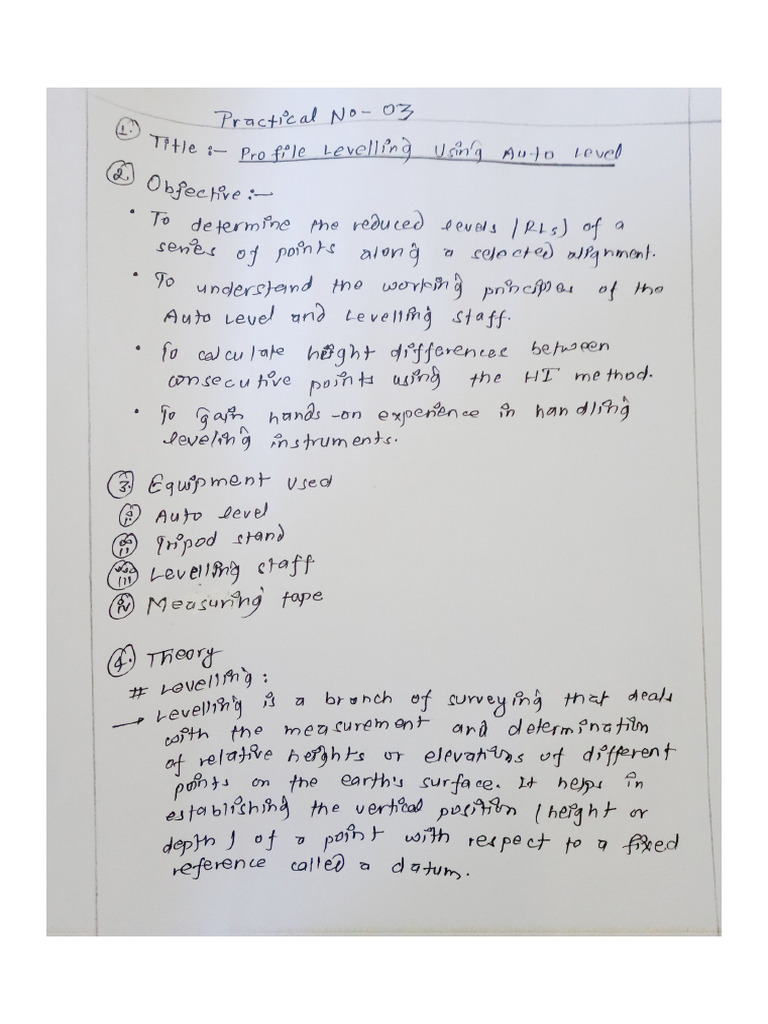 Practical No - 03
1. Title :- Profile Levelling Using Auto Level
2. Objective :-
• To determine the reduced levels (RLs) of a
series of points along a selected alignment.
• To understand the working principles of the
Auto Level and Levelling Staff.
• To calculate height differences between
consecutive points using the HI method.
• To Gain hands-on experience in handling
leveling instruments.
3. Equipment Used
i Auto level
ii Tripod stand
iii Levelling staff
iv Measuring tape
4. Theory
# Levelling :
→ Levelling is a branch of surveying that deals
with the measurement and determination
of relative heights or elevations of different
points on the earth's surface. It helps in
establishing the vertical position (height or
depth) of a point with respect to a fixed
reference called a datum.